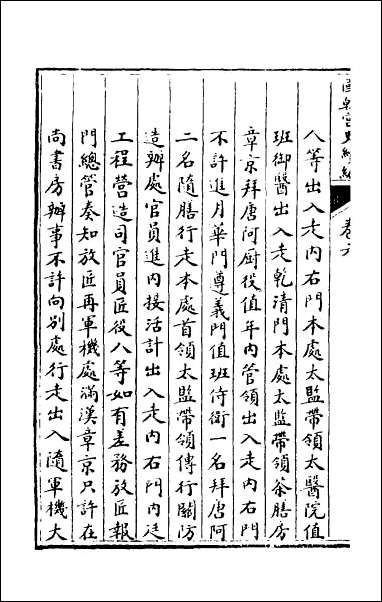 國朝宮史續編 卷六
人等出入走內右門本處太監帶領太醫院值
班御醫出入走乾清門本處太監帶領茶膳房
章京拜唐阿厨役值年內管領出入走內右門
不許進月華門遵義門值班侍衛一名拜唐阿
二名隨膳行走本處首領太監帶領傳行關防
造辦處官員進內接活計出入走內右門內廷
工程營造司官員匠役人等如有差務放匠報
門總管奏知放匠再軍機處滿漢章京只許在
尚書房辦事不許向別處行走出入隨軍機大